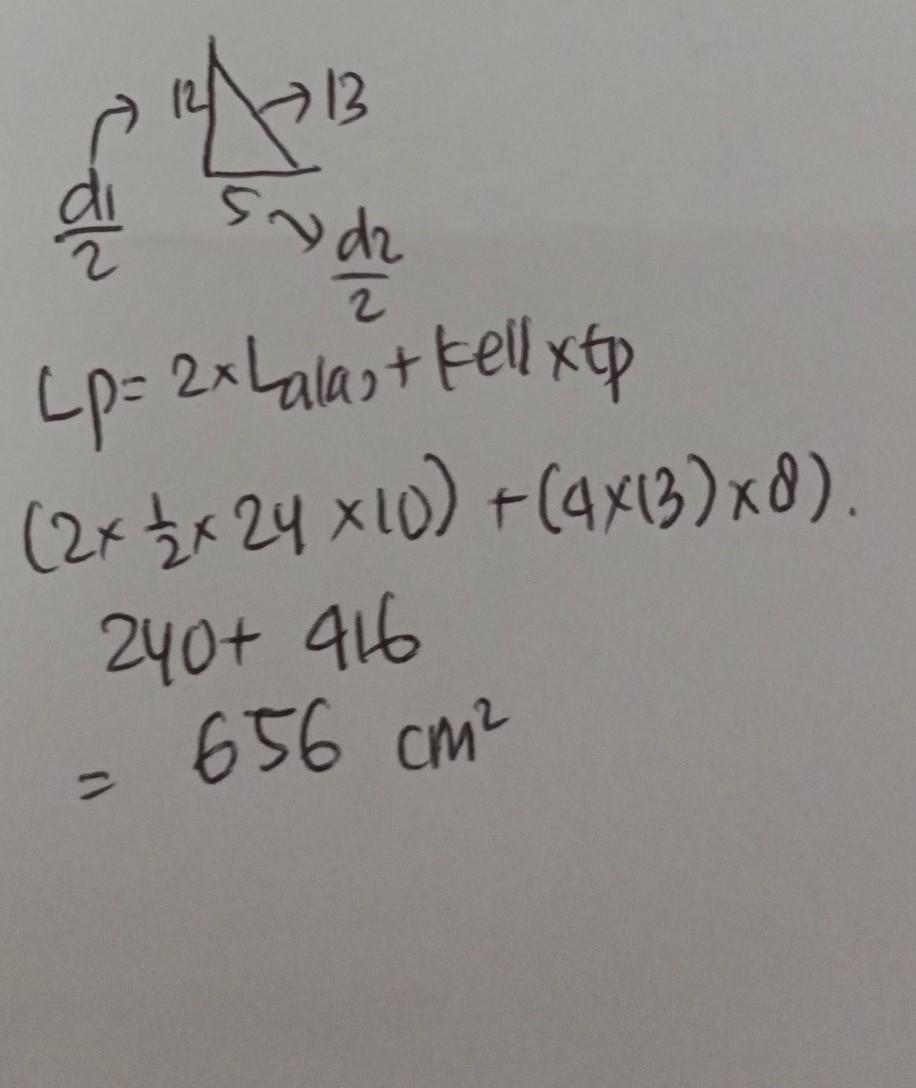 12 → 13
d1/2
5
d2/2
Lp = 2 × Lalas + kell × tp
(2 × 1/2 × 24 × 10) + (4 × 13) × 8).
240 + 416
= 656 cm²